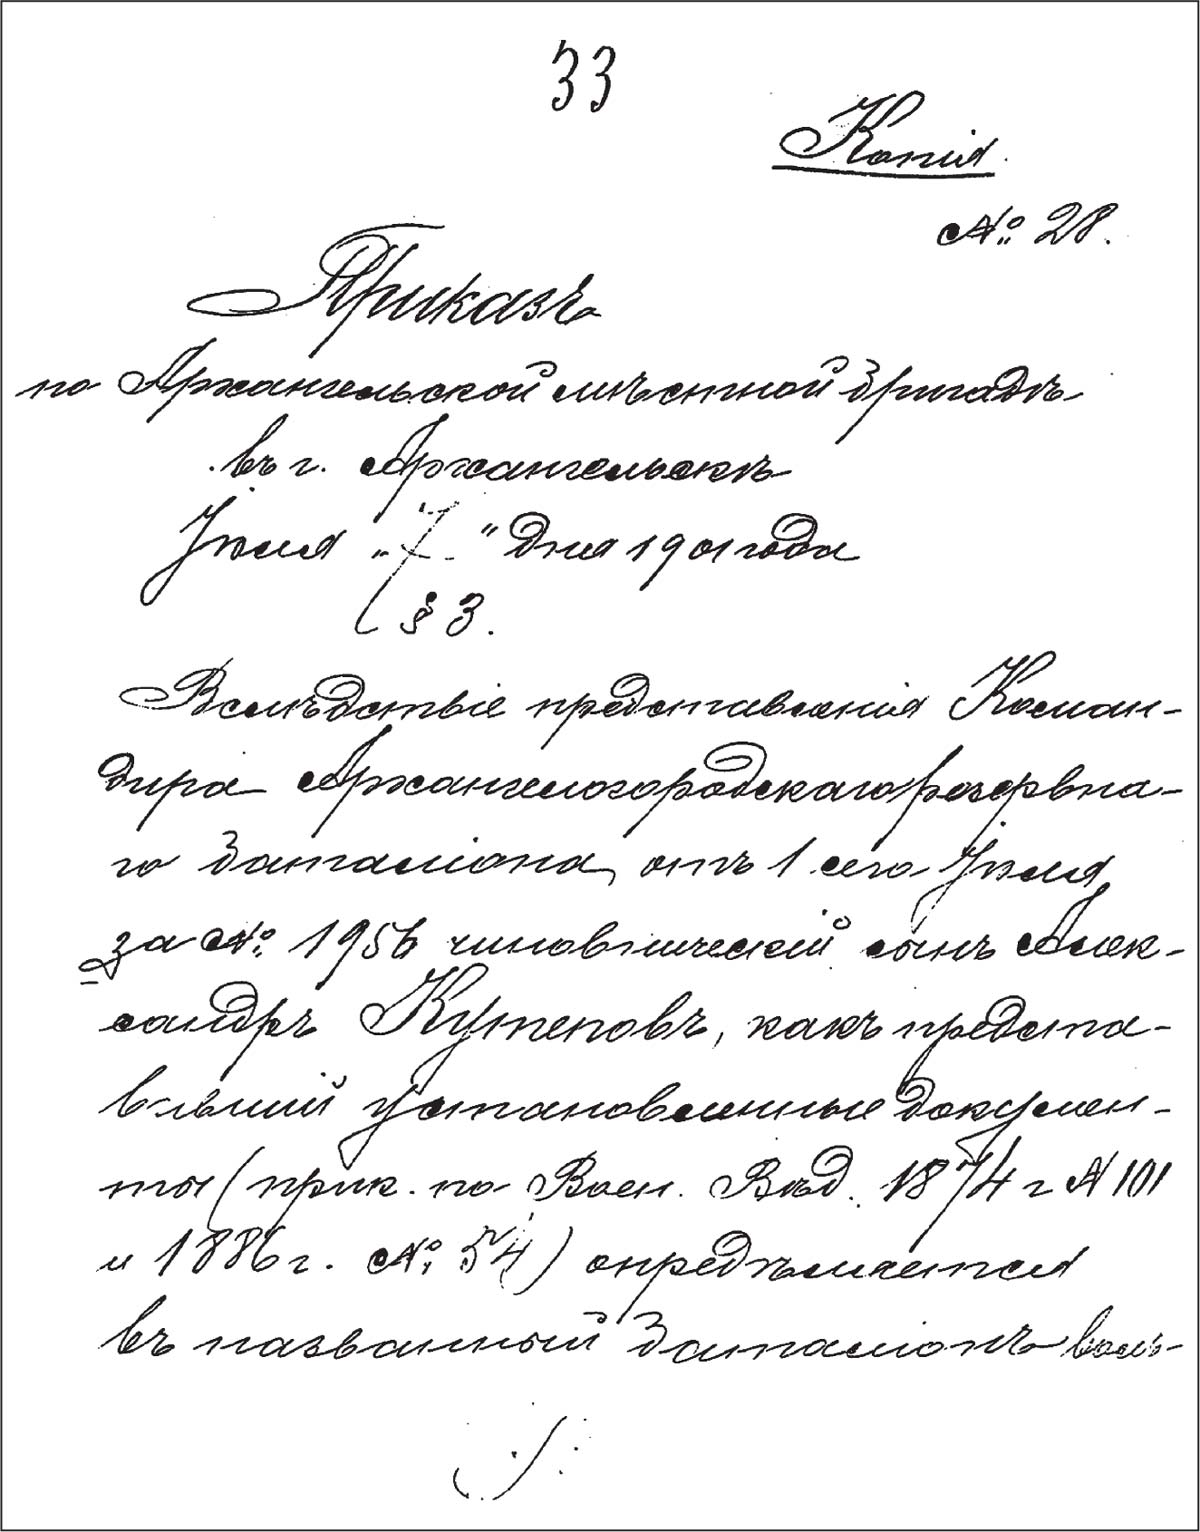 33
Копія
№ 28.
Приказъ
по Архангельской мѣстной бригадѣ
въ г. Архангельскѣ
Іюля „7" дня 1901 года
§ 3.
Вслѣдствіе представленія Коман-
дира Архангелогородскаго резервна-
го баталіона, отъ 1 сего Іюля
за № 1956 чиновническій сынъ Алек-
сандръ Кутеповъ, какъ предста-
вившій установленные докумен-
ты (прик. по Воен. Вѣд. 1874 г № 101
и 1886 г. № 54) опредѣляется
въ названный баталіонъ воль-